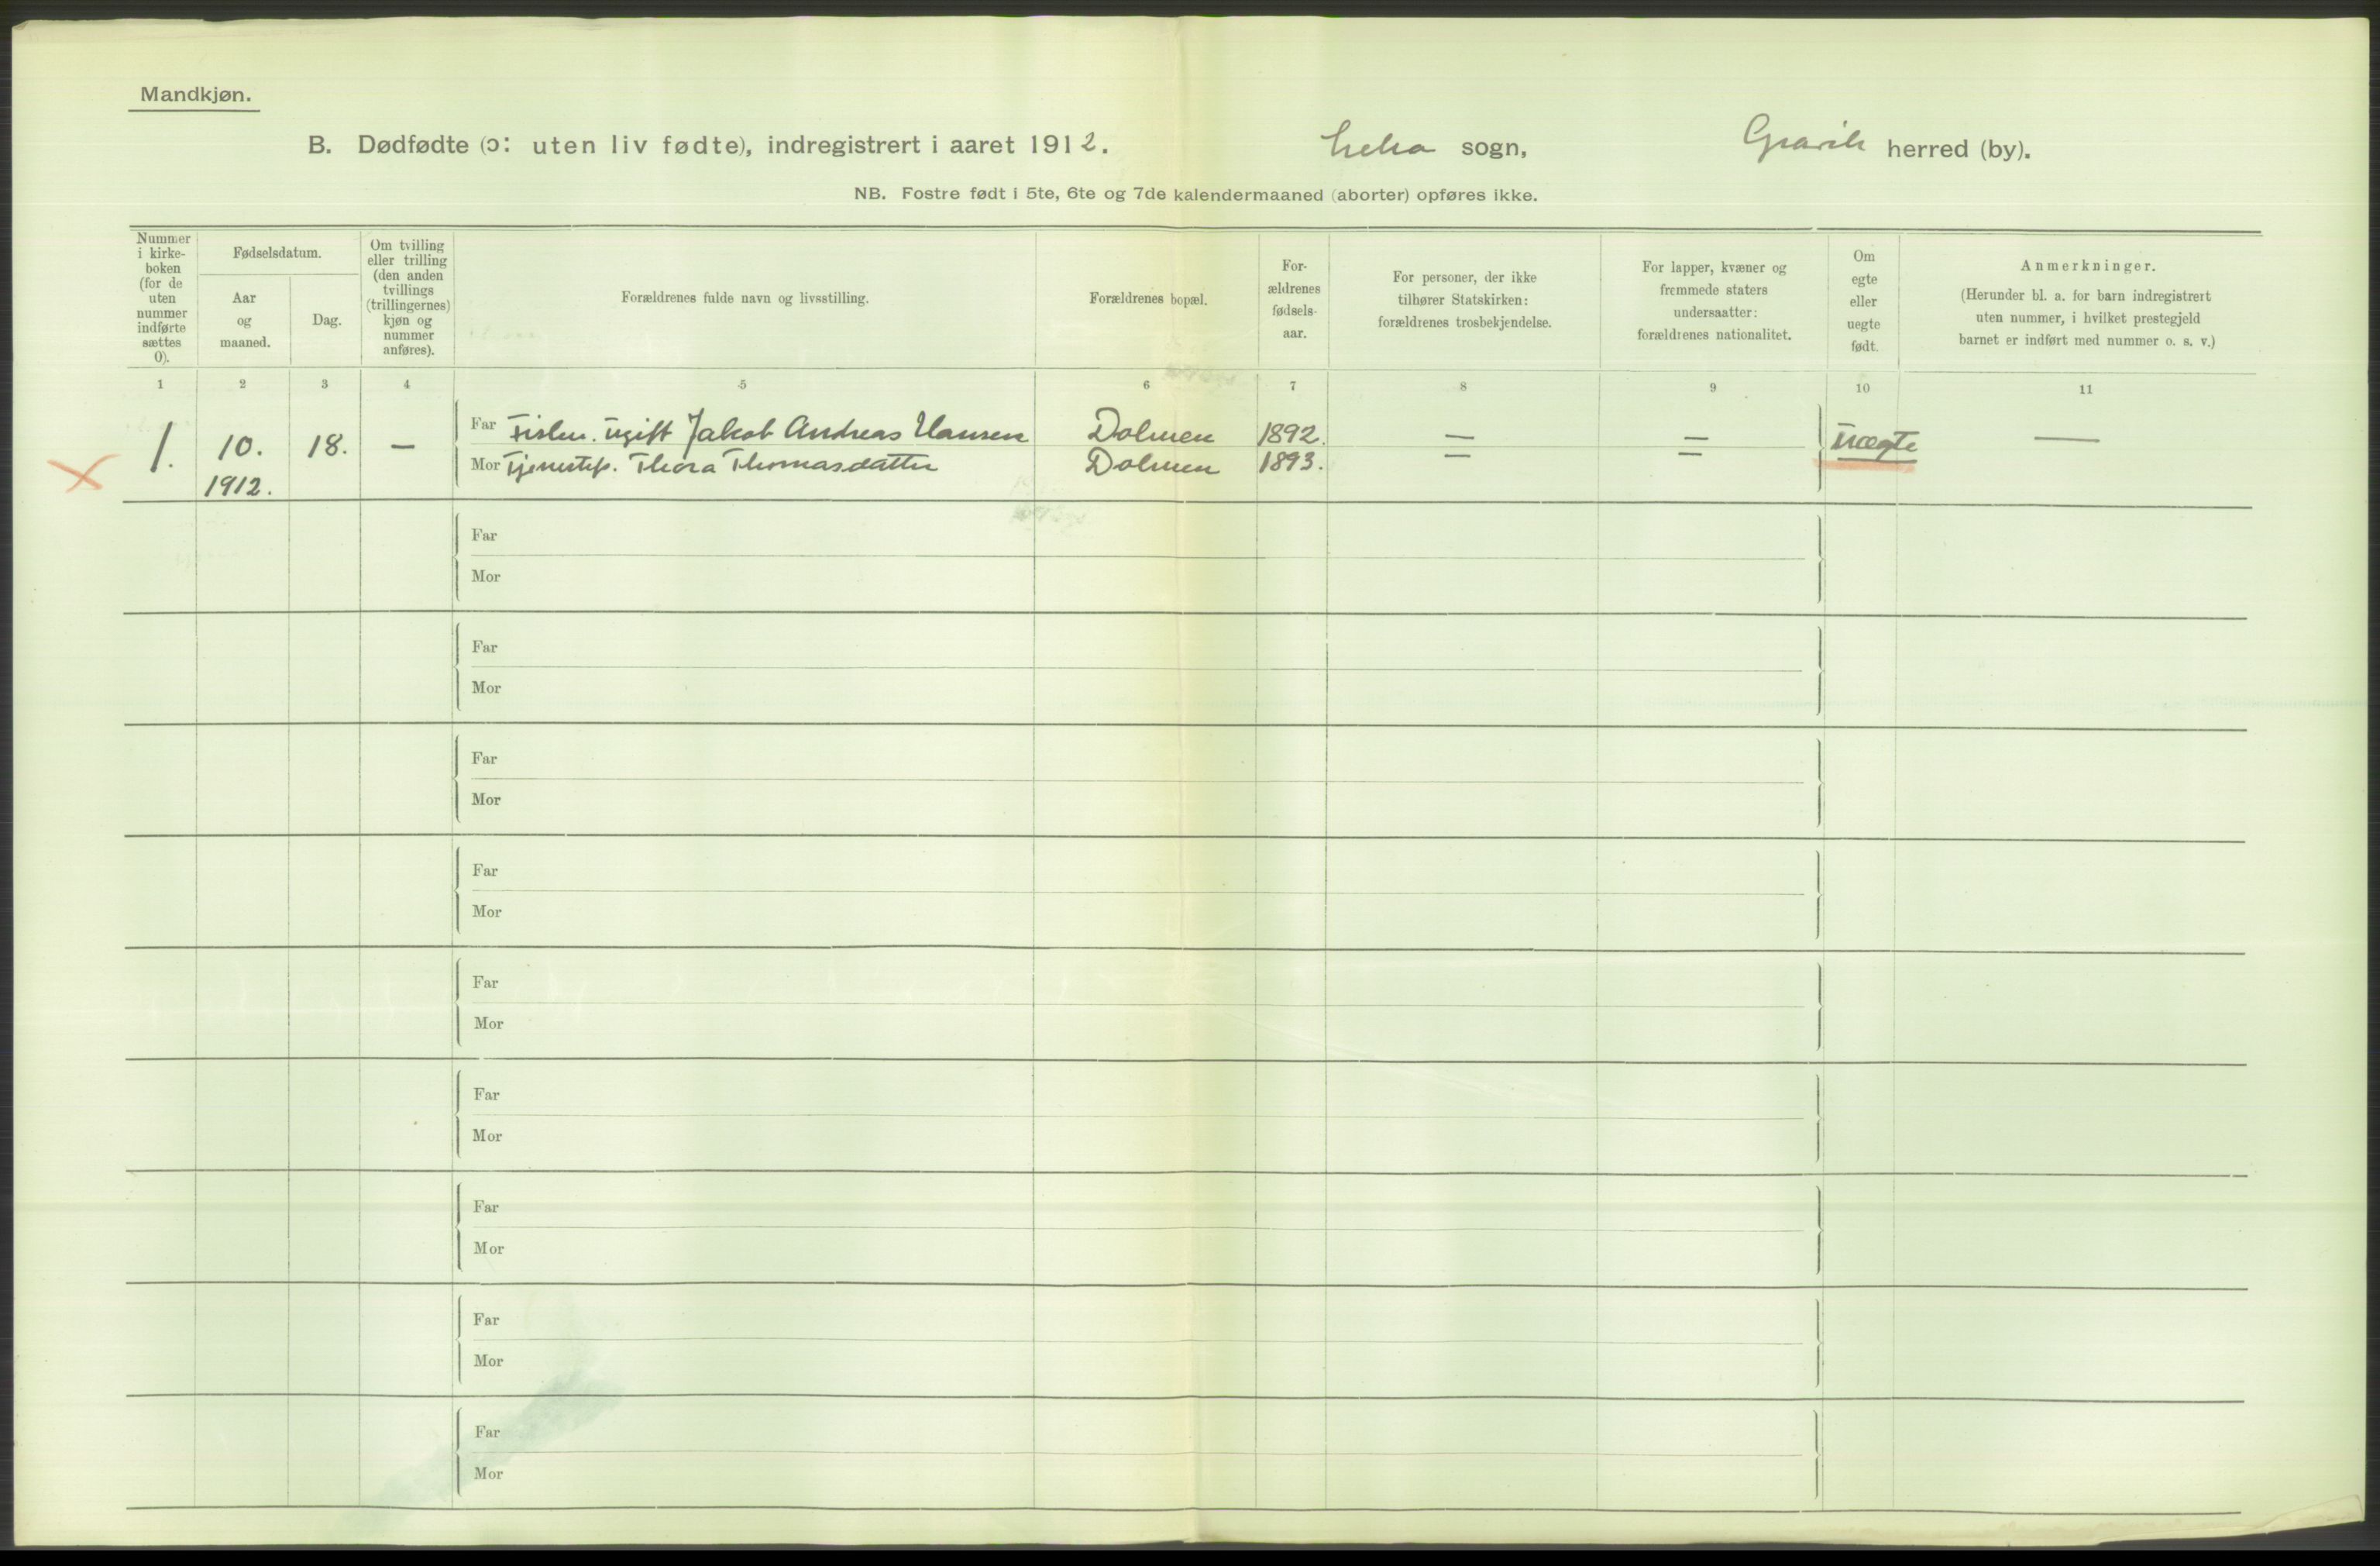 Mandkjøn.
B. Dødfødte (ɔ: uten liv fødte), indregistrert i aaret 1912. Leka sogn, Gravik herred (by).
NB. Fostre født i 5te, 6te og 7de kalendermaaned (aborter) opføres ikke.
Nummer i kirke-boken (for de uten nummer indførte sættes 0).
Fødselsdatum.
Aar og maaned.
Dag.
Om tvilling eller trilling (den anden tvillings (trillingernes) kjøn og nummer anføres).
Forældrenes fulde navn og livsstilling.
Forældrenes bopæl.
For-ældrenes fødsels-aar.
For personer, der ikke tilhører Statskirken: forældrenes trosbekjendelse.
For lapper, kvæner og fremmede staters undersaatter: forældrenes nationalitet.
Om egte eller uegte født.
Anmerkninger.
(Herunder bl. a. for barn indregistrert uten nummer, i hvilket prestegjeld barnet er indført med nummer o. s. v.)
1 2 3 4 5 6 7 8 9 10 11
1. 10. 1912. 18. —
Far Fisker. ugift Jakob Andreas Hansen Dolmen 1892. — — Uægte —
Mor Tjenestep. Thora Thomasdatter Dolmen 1893. — —
Far
Mor
Far
Mor
Far
Mor
Far
Mor
Far
Mor
Far
Mor
Far
Mor
Far
Mor
Far
Mor